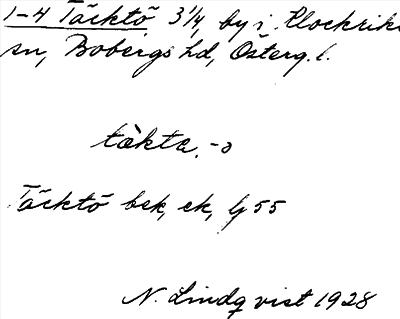 1-4 Täcktö 3 1/4, by i Klockrike
sn, Bobergs hd, Österg. l.
tǎkta, -ə
Täcktö bek, ek, Lg 55
N. Lindqvist 1928